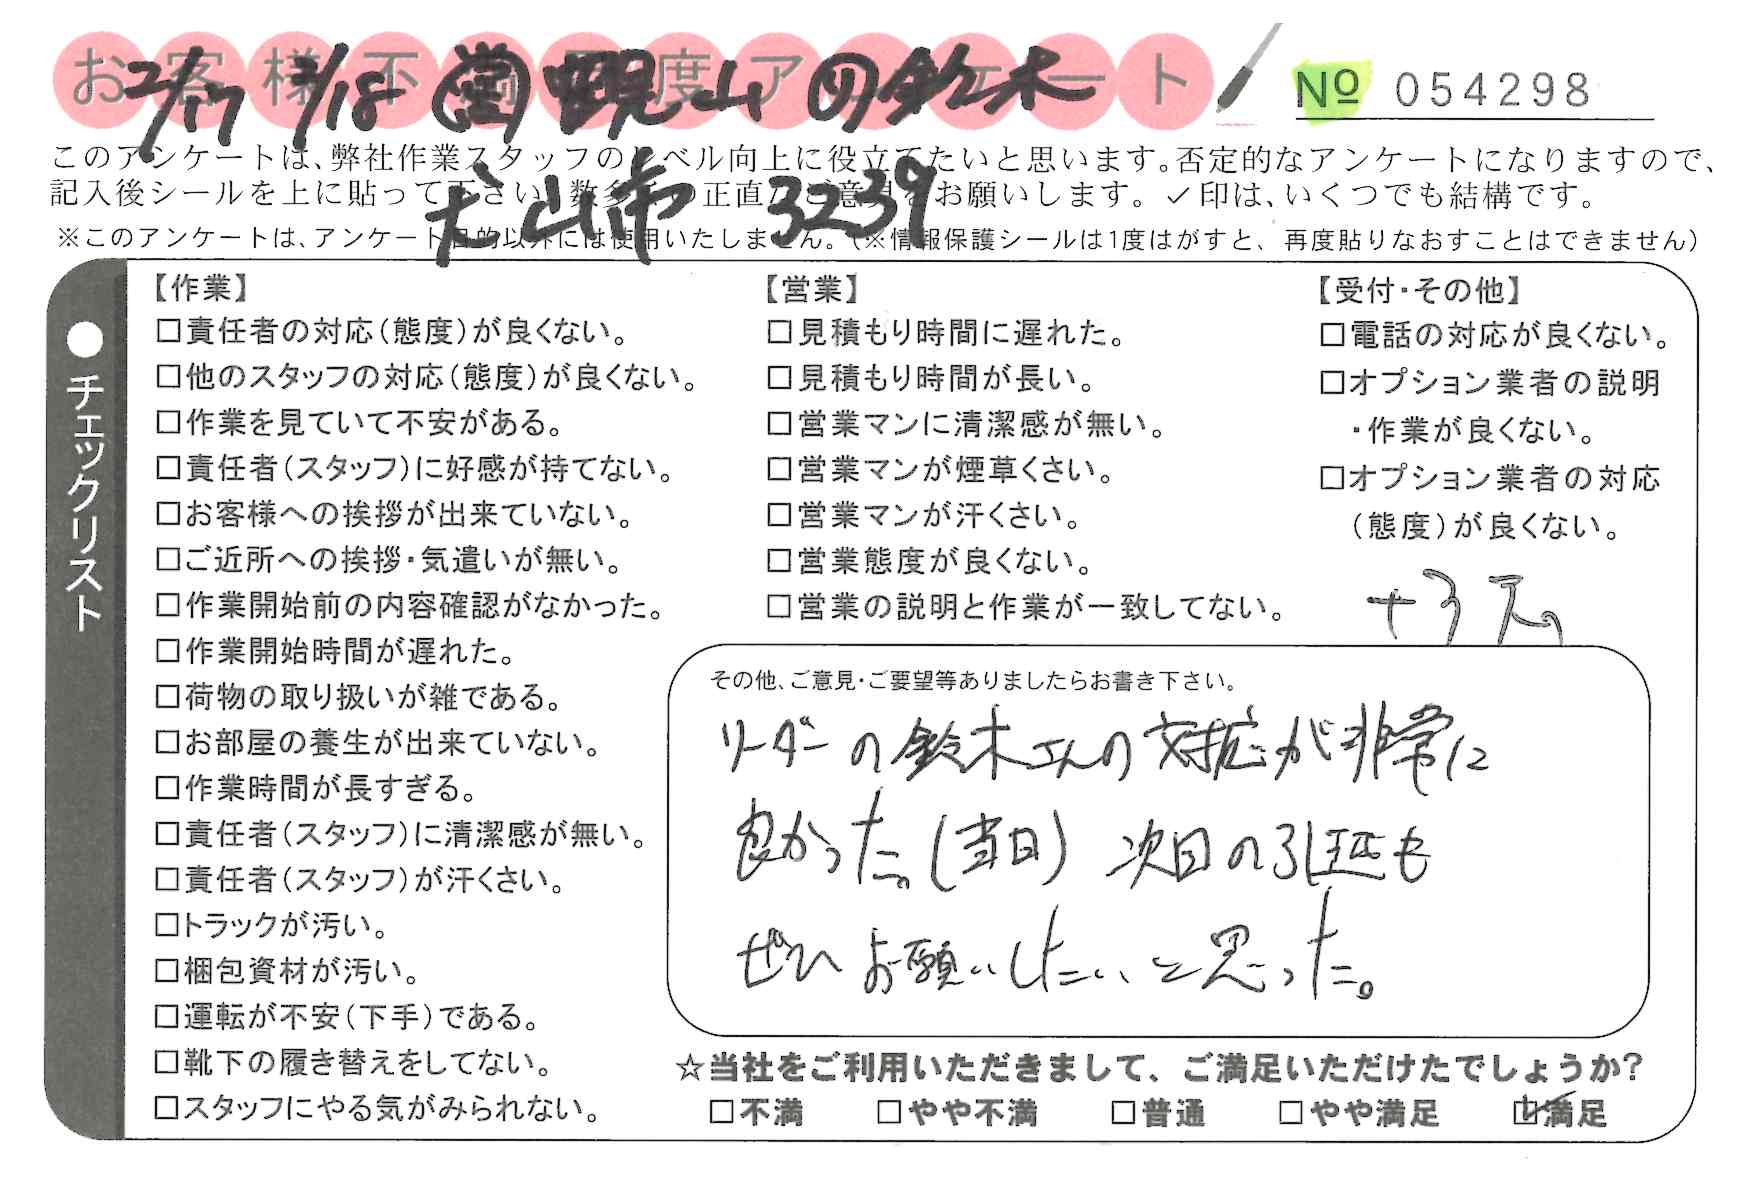 お客様不満足度アンケート
2/17 2/18 営 山 リ 鈴木
No 054298
このアンケートは、弊社作業スタッフのレベル向上に役立てたいと思います。否定的なアンケートになりますので、
記入後シールを上に貼って下さい。数多くの正直なご意見をお願いします。✓印は、いくつでも結構です。
犬山市 3239
※このアンケートは、アンケート目的以外には使用いたしません。(※情報保護シールは1度はがすと、再度貼りなおすことはできません)
●チェックリスト
【作業】
□責任者の対応(態度)が良くない。
□他のスタッフの対応(態度)が良くない。
□作業を見ていて不安がある。
□責任者(スタッフ)に好感が持てない。
□お客様への挨拶が出来ていない。
□ご近所への挨拶・気遣いが無い。
□作業開始前の内容確認がなかった。
□作業開始時間が遅れた。
□荷物の取り扱いが雑である。
□お部屋の養生が出来ていない。
□作業時間が長すぎる。
□責任者(スタッフ)に清潔感が無い。
□責任者(スタッフ)が汗くさい。
□トラックが汚い。
□梱包資材が汚い。
□運転が不安(下手)である。
□靴下の履き替えをしてない。
□スタッフにやる気がみられない。
【営業】
□見積もり時間に遅れた。
□見積もり時間が長い。
□営業マンに清潔感が無い。
□営業マンが煙草くさい。
□営業マンが汗くさい。
□営業態度が良くない。
□営業の説明と作業が一致してない。
【受付・その他】
□電話の対応が良くない。
□オプション業者の説明
・作業が良くない。
□オプション業者の対応
(態度)が良くない。
その他、ご意見・ご要望等ありましたらお書き下さい。
リーダーの鈴木さんの対応が非常に
良かった。(当日) 次回の引越も
ぜひお願いしたいと思った。
☆当社をご利用いただきまして、ご満足いただけたでしょうか?
□不満 □やや不満 □普通 □やや満足 ☑満足